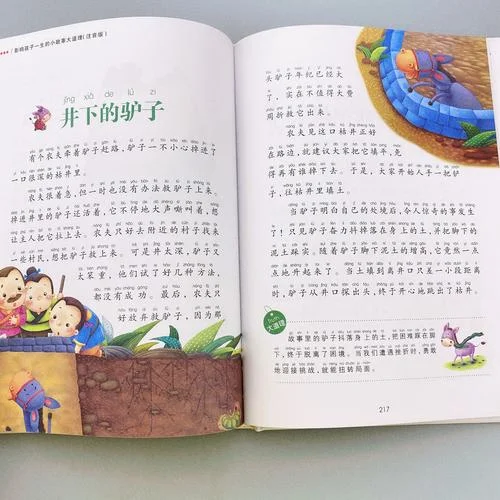 影响孩子一生的小故事大道理(注音版)
jǐng xià de lǘ zi
井下的驴子
有个农夫牵着驴子赶路,驴子一不小心掉进了
一口很深的枯井里。
农夫很着急,但一时也没有办法救驴子上来。
掉进井里的驴子还活着,它不停地大声嘶叫着,想
让主人把它拉上去。农夫只好去附近的村子找来
一些村民,想把驴子救上来。可是井太深,驴子又
太笨重,他们试了好几种方法,
都没有成功。最后,农夫只
好放弃救驴子,因为那
头驴子年纪已经大
了,实在不值得大费
周折救它出来。
农夫见这口枯井正好
在路边,就建议大家把它填平,免
得再有谁掉下去。于是,大家开始人手一把铲
子,往枯井里填土。
当驴子明白自己的处境后,令人惊奇的事发生
了!只见驴子奋力抖掉落在身上的土,并把脚下的
泥土踩实。随着驴子脚下泥土的增高,它竟然一点
点地升起来了。当土填到离井口只差一小段距离
时,驴子从井口探出头,终于开心地跳出了枯井。
大道理
故事里的驴子抖落身上的土,把困难踩在脚
下,终于脱离了困境。当我们遭遇挫折时,勇敢
地迎接挑战,就能扭转局面。
217